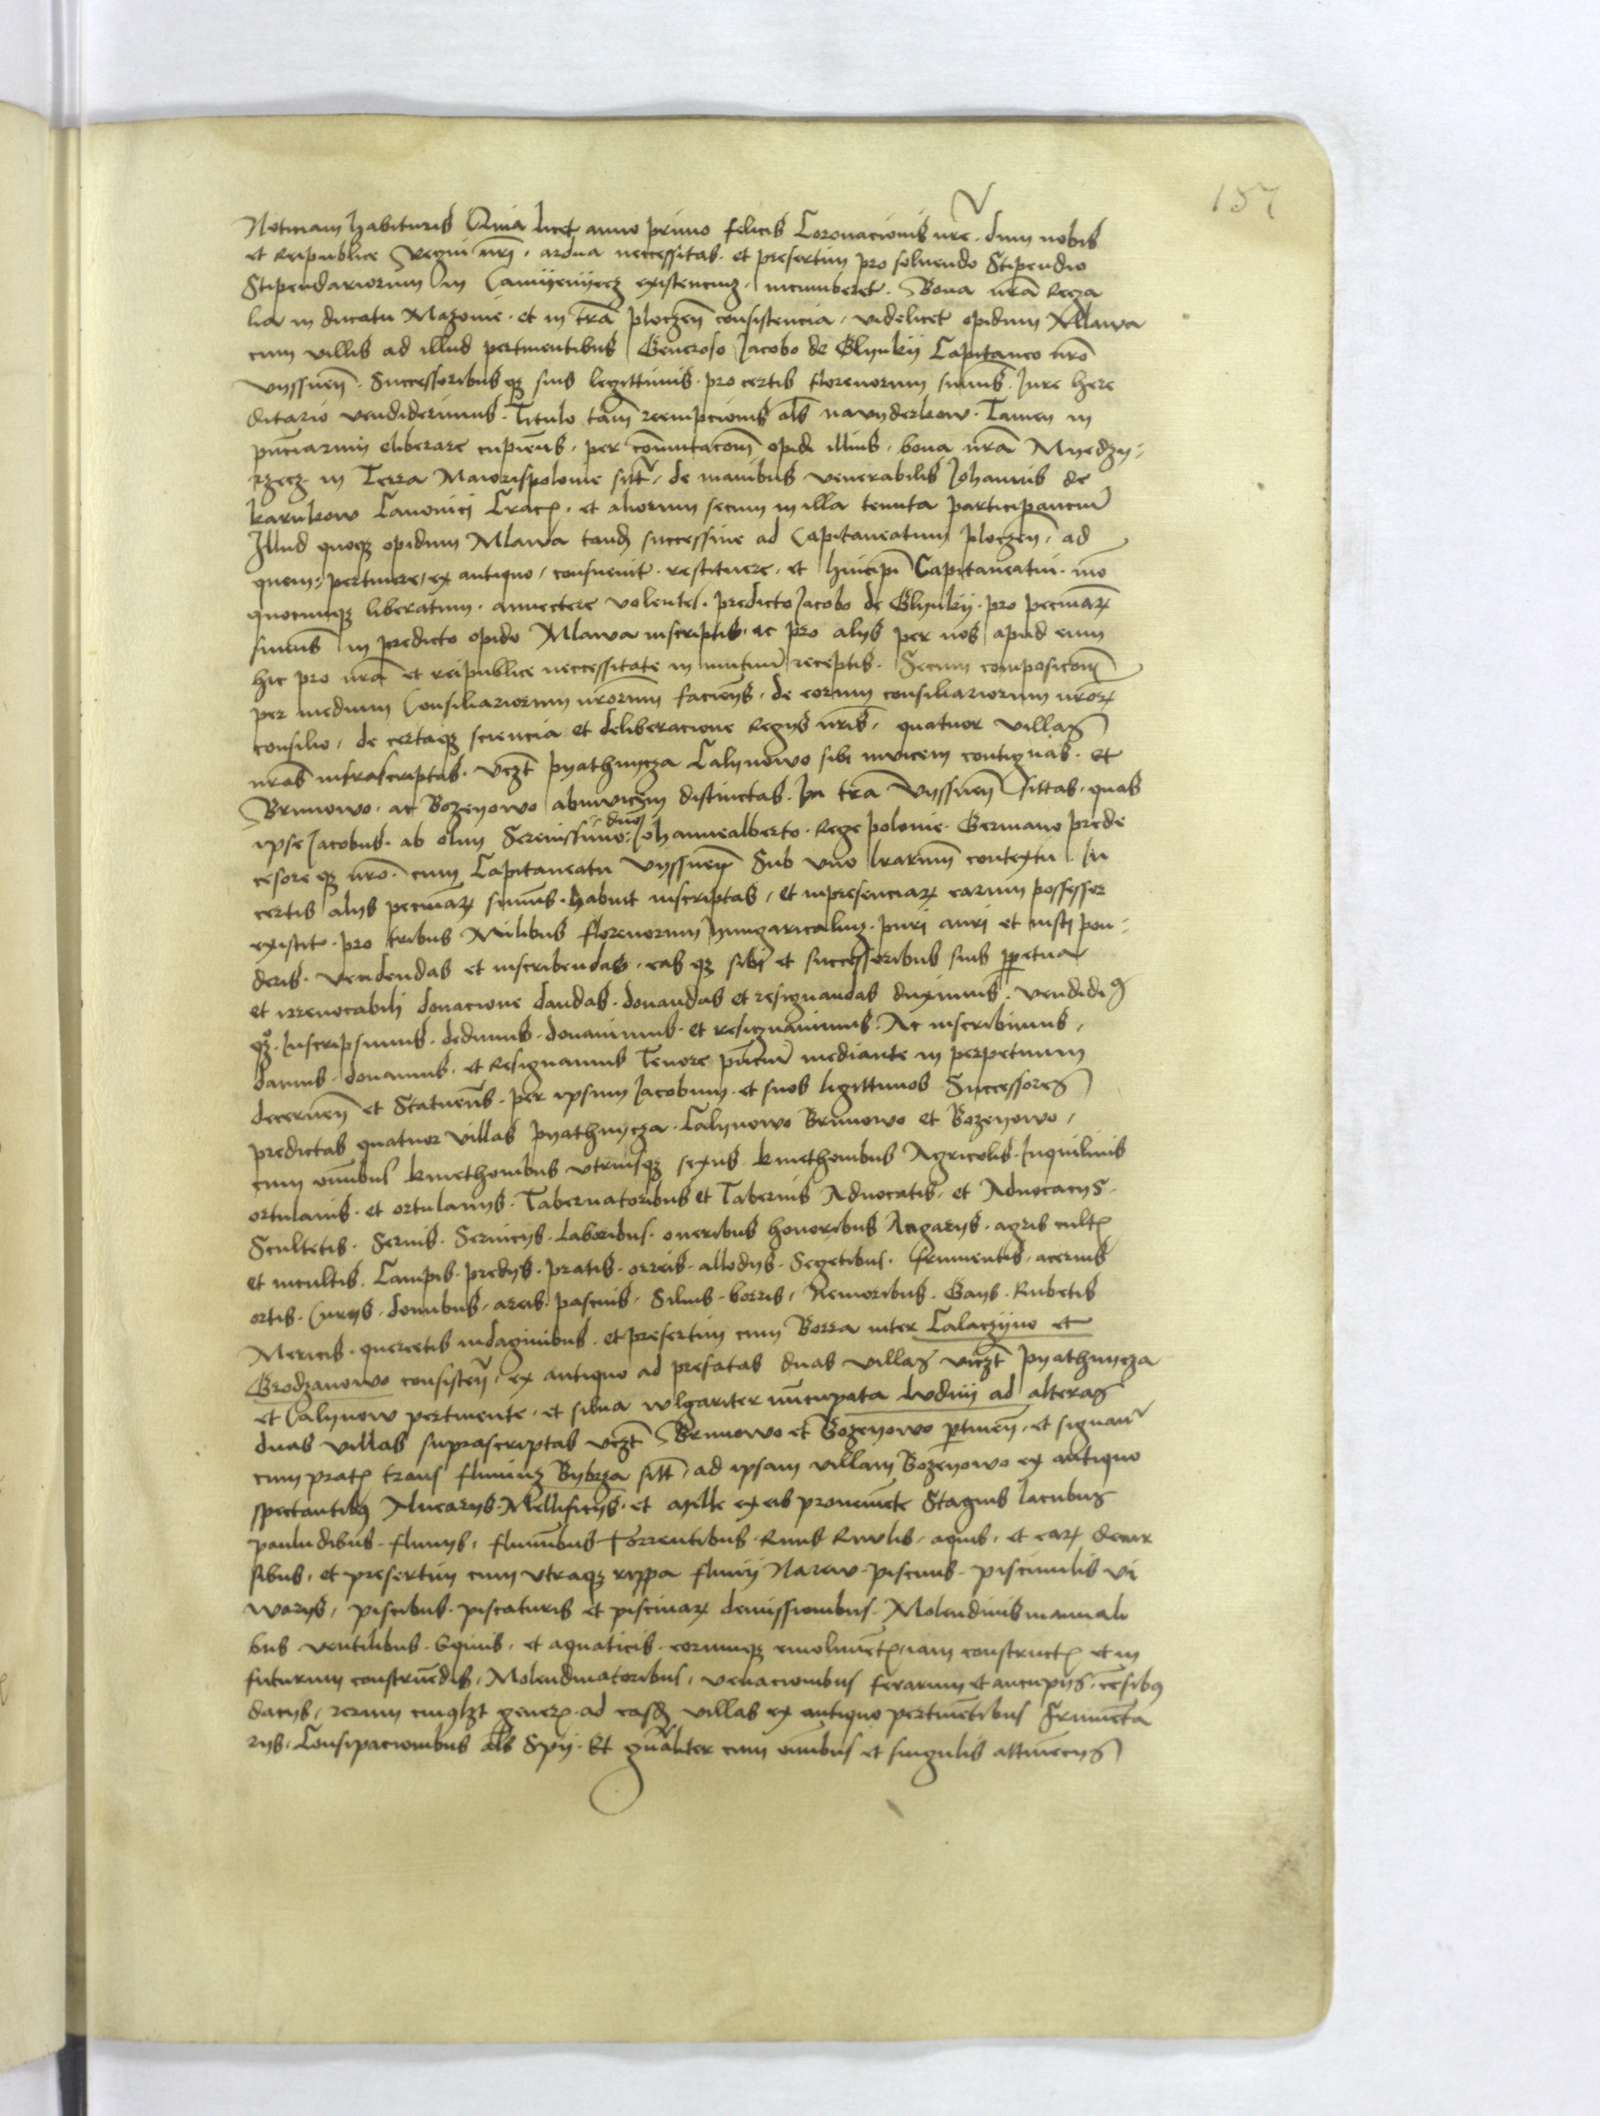 157
Noticiam habituris Quia licet anno primo felicis Coronacionis nre. dum nobis
et Reipublice Regni nri. ardua neccessitas. et presertim pro soluendo Stipendio
Stipendariorum in Camijenijecz existencium. incumberet. Bona nra Rega
lia in ducatu Mazouie. et in tra ploczen consistencia, videlicet opidum Mlawa
cum villis ad illud pertinentibus Generoso Jacobo de Glynkij Capitaneo nro
vyssnen. Successoribusqz suis legittimis. pro certis florenorum summis. Jure here
ditario vendiderimus. Titulo tam reempcionis als nawyderkow. Tamen in
pnciarum eliberare cupiens. per comutacom opidi illius. bona nra Myedzy
rzecz. in Terra Maiorispolonie sitt, de manibus venerabilis Johannis de
karnkow Canonici Crac. et aliorum secum in illa tenuta participancium
Illud quoqz opidum Mlawa tandem successiue ad Capitaneatum ploczen, ad
quem, pertinere, ex antiquo, consueuit. restituere. et huicipi Capitaneatui. mo
quocunqz liberatum. annectere volentes. predicto Jacobo de Glynkij. pro pecuniarum
summis in predicto opido Mlawa inscriptis. ac pro alijs per nos apud eum
hic pro nra et reipublice neccessitate in mutuum receptis. Secum composicom
per medium Consiliariorum nrorum faciens. de eorum consiliariorum nrorum
consilio, de certaqz sciencia et deliberacione Regijs nris, quatuor villas
nras infrascriptas. vczt pyathnycza Calynowo sibi inuicem contiguas. et
Brunowo. ac Bozenowo abinuicem distinctas. In tra vyssnen sittas. quas
ipse Jacobus. ab olim Serenissimo: dno Johannealberto. Rege polonie. Germano prede
cesoreqz nro. cum Capitaneatu vyssnen Sub vno lrarum contextu. In
certis alijs pecuniarum summis. habuit inscriptas, et inpresenciarum earum possessor
existit. pro tribus Milibus florenorum hungaricalium. puri auri et iusti pon
deris. vendendas et inscribendas. easqz sibi et successoribus suis perpetua
et irreuocabili donacione dandas. donandas et resignandas duximus. vendidi
qz. Inscripsimus. dedimus. donauimus. et resignauimus. Ac inscribimus,
damus. donamus. et Resignamus Tenore pncium mediante in perpetuum
decernen et Statuens. per ipsum Jacobum. et suos ligittimos Successores
predictas quatuor villas pyathnycza. Calynowo Brunowo et Bozenowo,
cum omnibus kmethonibus vtriusqz sexus kmethonibus Agricolis. Inquilinis
ortulanis. et ortulanijs. Tabernatoribus et Tabernis Aduocatis. et Aduocacijs.
Scultetis. Seruis. Seruicijs. Laboribus. oneribus honoribus Angarijs. agris cultis
et incultis. Campis. predijs. pratis. orreis. allodijs. Segetibus. frumentis. aceruis
ortis. Curijs. domibus. areis. pascuis. Siluis. borris. Nemoribus. Gays. Rubetis
Mericis. quercetis indaginibus. et presertim cum Borra inter Calaczijno et
Grodzanowo consisten, ex antiquo ad prefatas duas villas viczt pyathnycza
et Calynow pertinente. et silua wlgariter nuncupata wdnij ad alteras
duas villas suprascriptas vczt Brunowo et Bozenowo ptinen, et signant
cum pratis trans fluuium Bybrza sitt, ad ipsam villam Bozenowo ex antiquo
spectantibus Aluearijs. Mellificijs. et Melle ex eis proueniente Stagnis lacubus
paludibus. fluuijs, fluminibus Torrentibus. Riuis Riwlis. aquis. et earum decur
sibus. et presertim cum vtraqz rippa fluuij Narew. piscinis. pisciculis vi
warijs, piscibus. piscaturis et piscinarum demissionibus. Molendinis manuali
bus ventilibus. Equinis. et aquaticis. eorumqz emolimentis, iam constructis et in
futurum construendis, Molendinatoribus, venacionibus ferarum et aucupijs. censibus
dacijs, rerum cuiuslzt generis. ad easdem villas ex antiquo pertinentibus Frumenta
rijs. Consipacionibus als Spij. Et gnaliter cum omnibus et singulis attinencijs